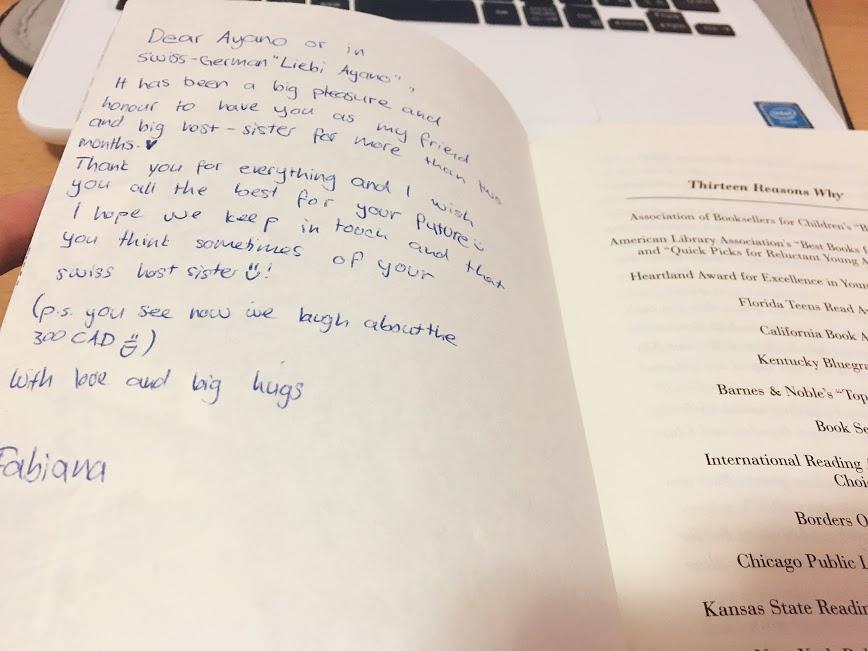 Dear Ayano or in
swiss-German "Liebi Ayano",
It has been a big pleasure and
honour to have you as my friend
and big host-sister for more than two
months.♥
Thank you for everything and I wish
you all the best for your future☺
I hope we keep in touch and that
you think sometimes of your
swiss host sister☺!
(p.s. you see now we laugh about the
300 CAD ☺)
With love and big hugs
Fabiana
intel
Thirteen Reasons Why
Association of Booksellers for Children's "B
American Library Association's "Best Books f
and "Quick Picks for Reluctant Young A
Heartland Award for Excellence in Youn
Florida Teens Read A
California Book A
Kentucky Bluegra
Barnes & Noble's "Top
Book Se
International Reading
Choi
Borders O
Chicago Public L
Kansas State Readin